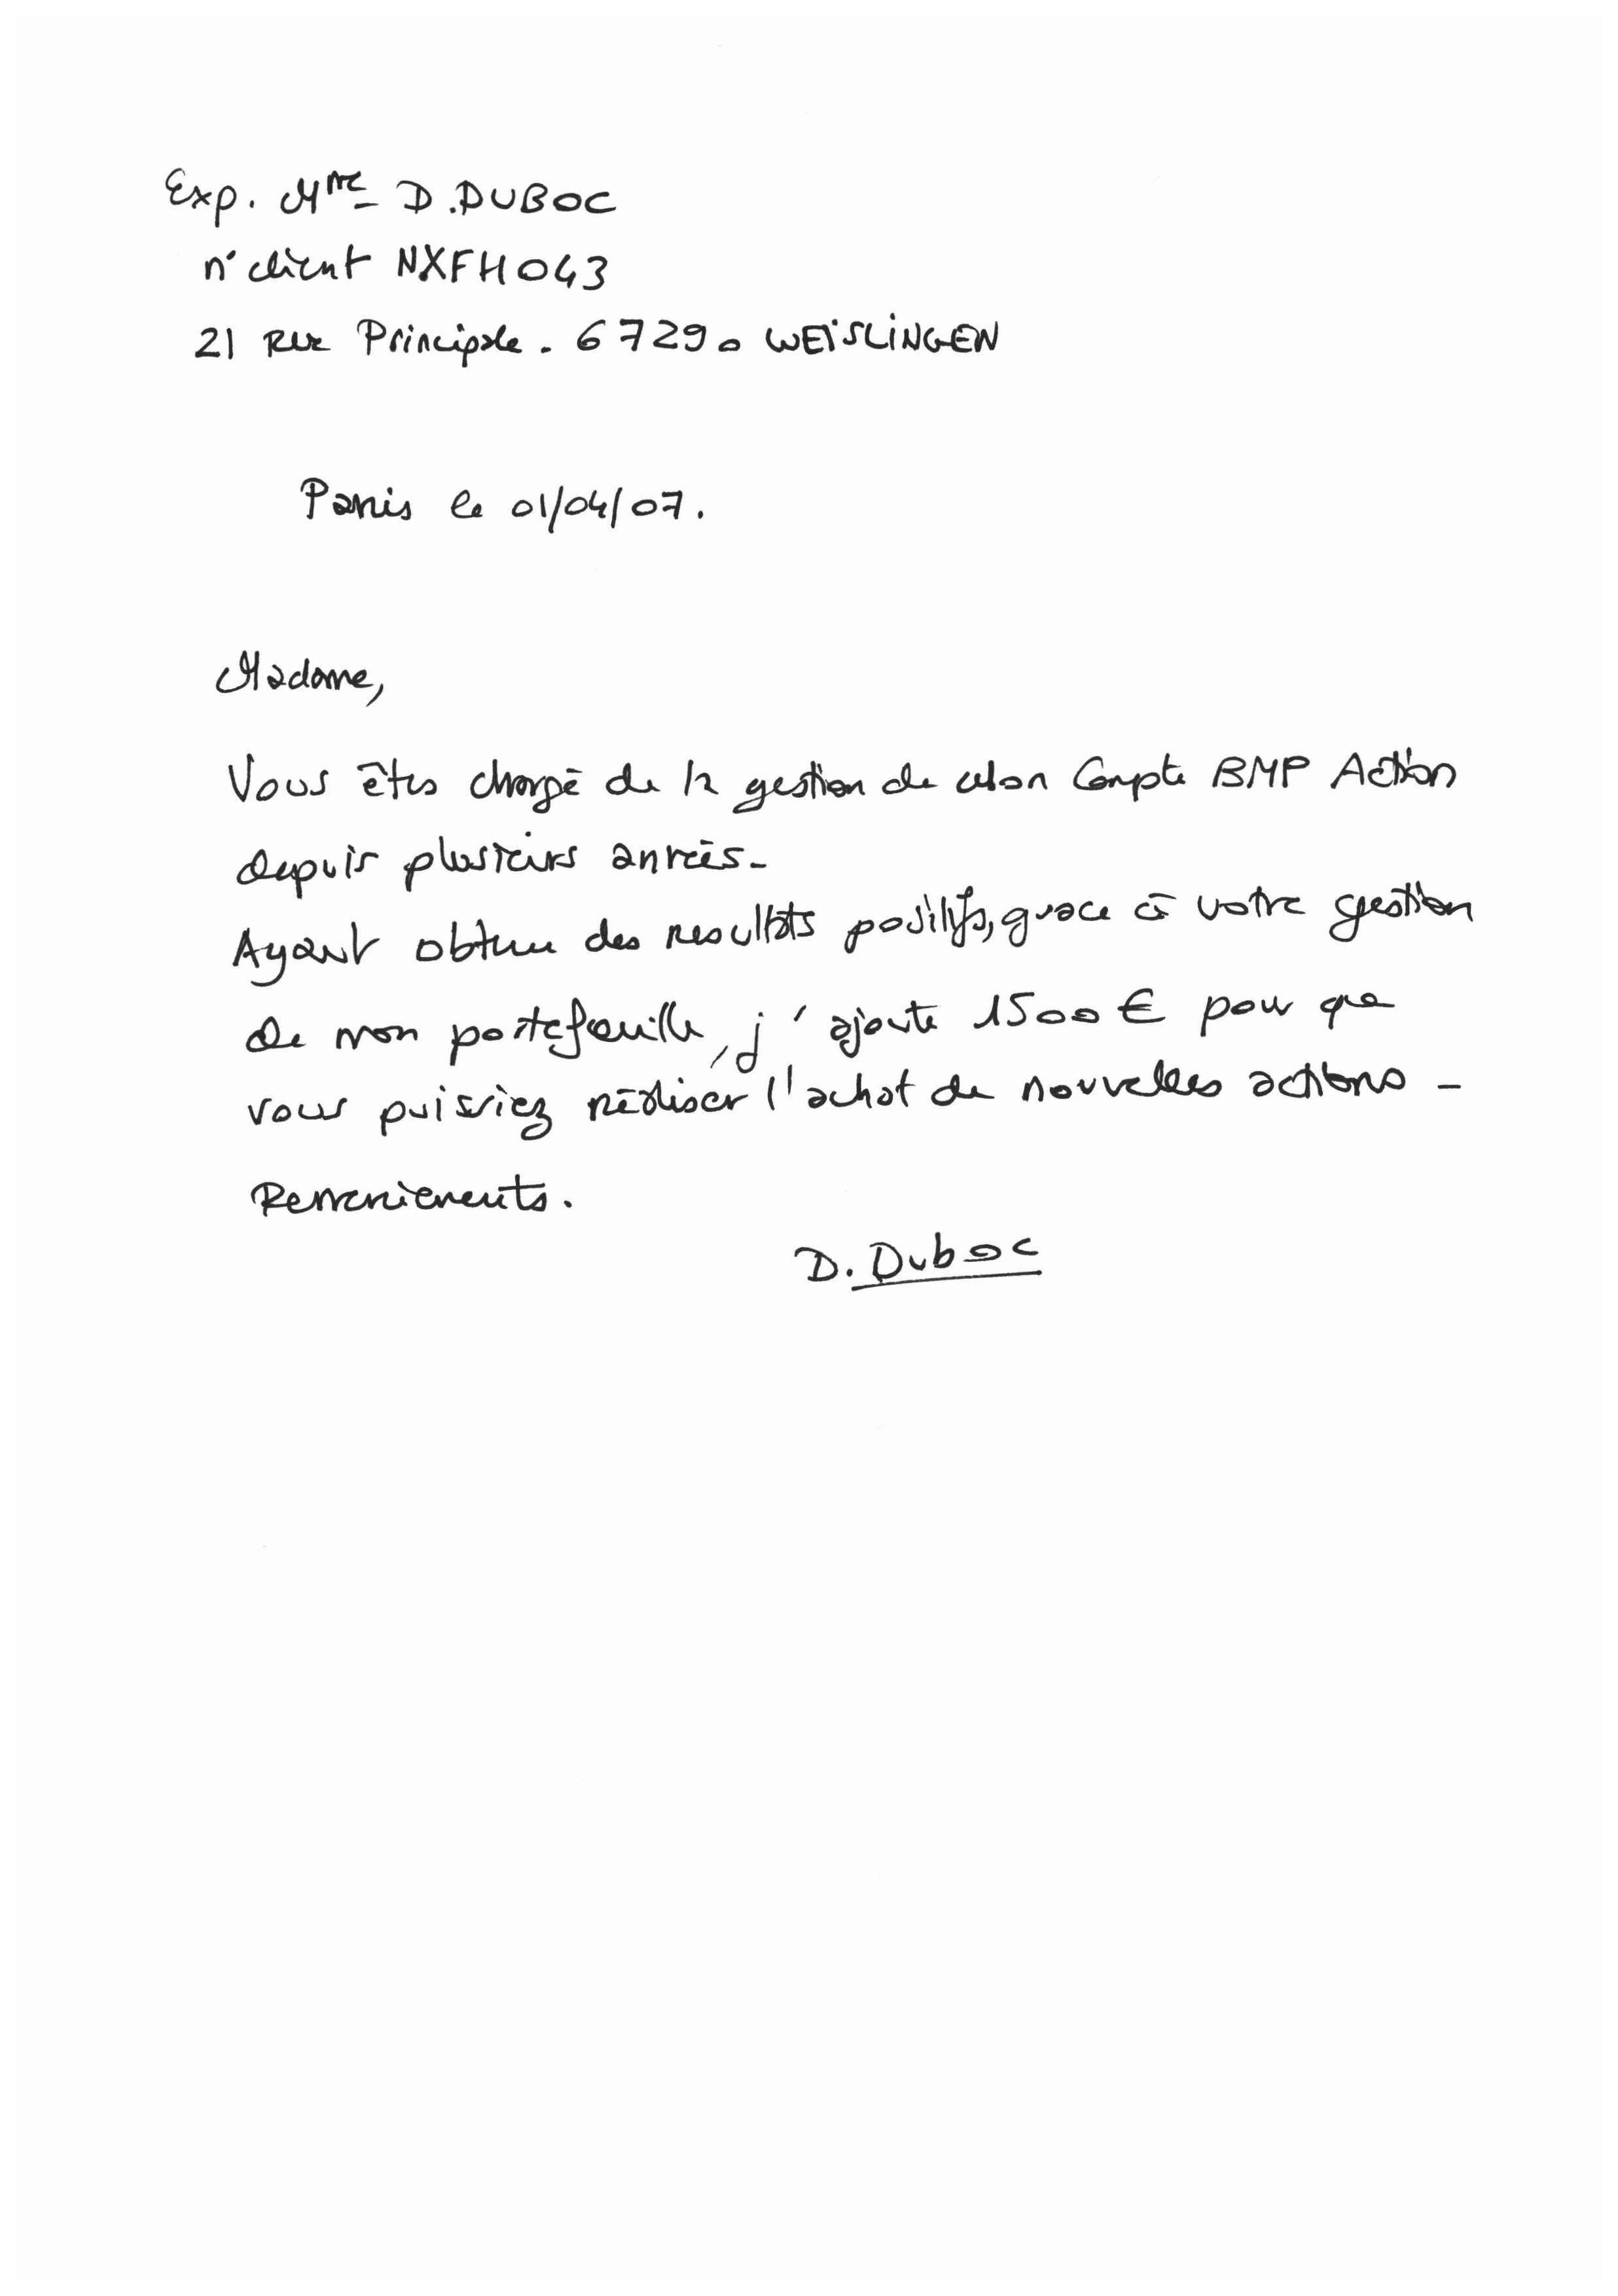 Exp. Mme D. DUBOC
n° client NXFH043
21 Rue Principale. 67290 WEISLINGEN
Paris le 01/04/07.
Madame,
Vous êtes chargé de la gestion de mon Compte BMP Action
depuis plusieurs années.
Ayant obtenu des resultats positifs, grace à votre gestion
de mon portefeuille, j'ajoute 1500 € pour que
vous puissiez réaliser l'achat de nouvelles actions -
Remerciements.
D. Duboc